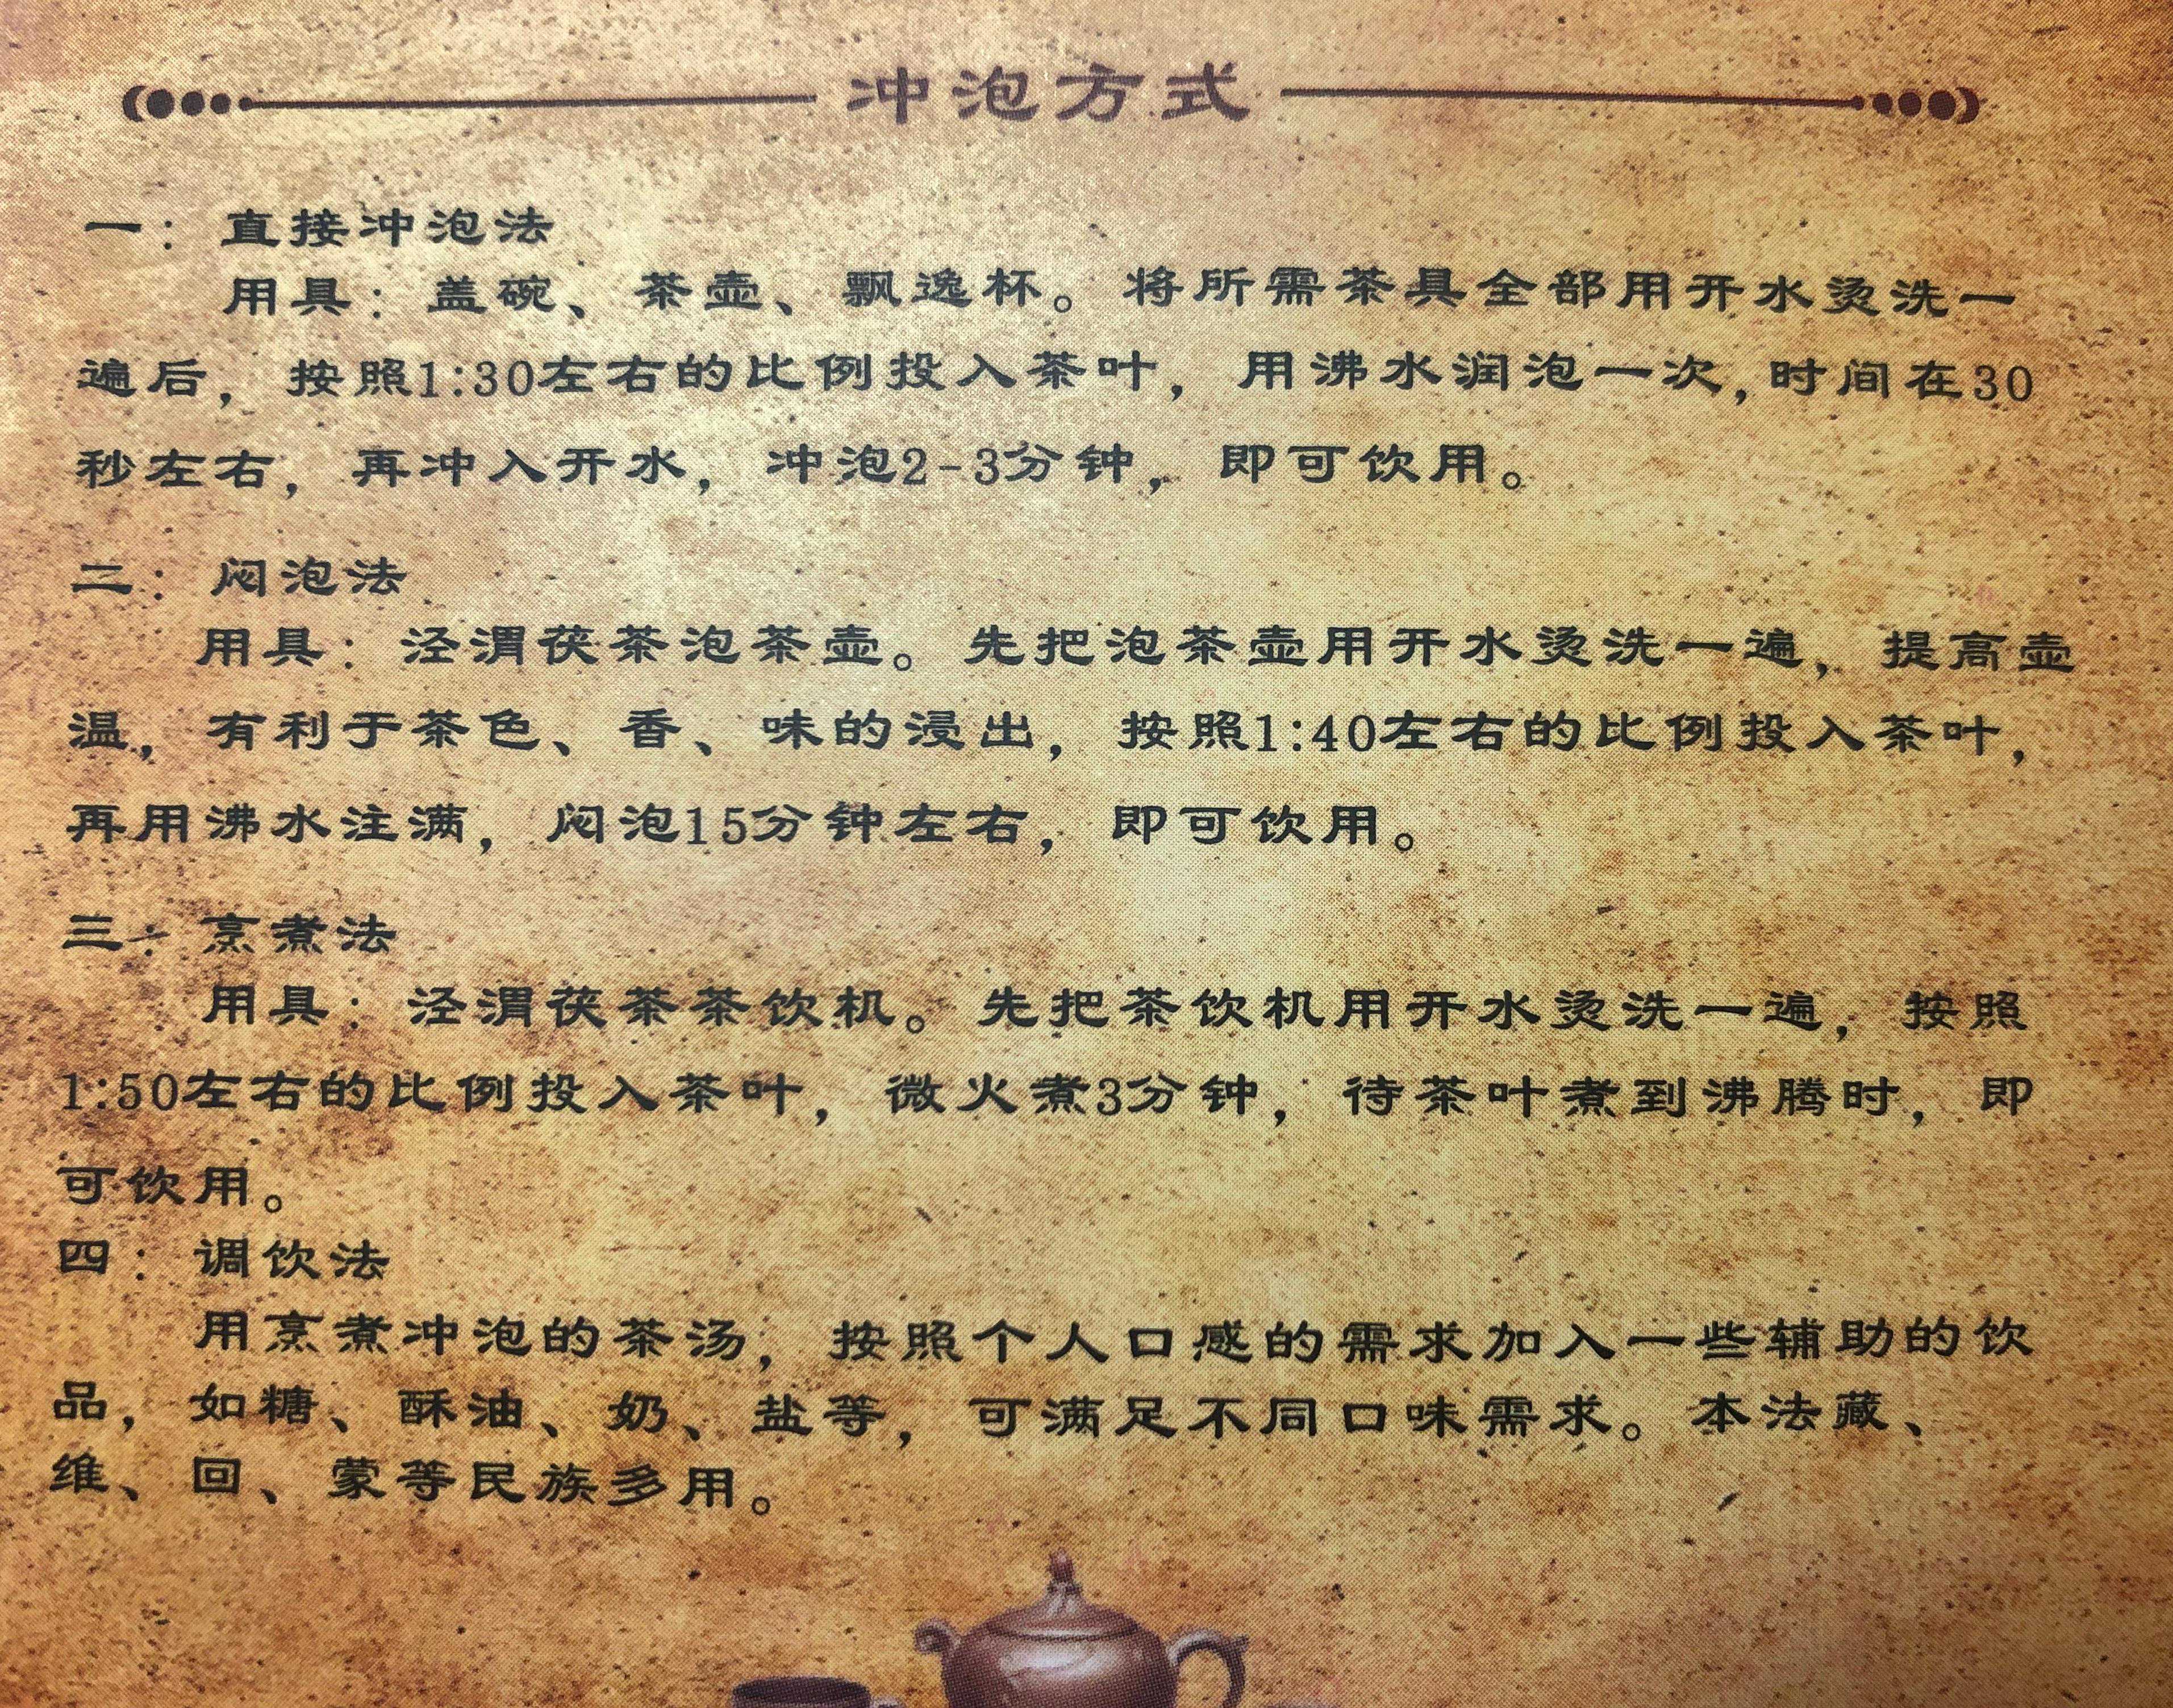 冲泡方式
一：直接冲泡法
用具：盖碗、茶壶、飘逸杯。将所需茶具全部用开水烫洗一
遍后，按照1:30左右的比例投入茶叶，用沸水润泡一次,时间在30
秒左右，再冲入开水，冲泡2-3分钟，即可饮用。
二：闷泡法
用具：泾渭茯茶泡茶壶。先把泡茶壶用开水烫洗一遍，提高壶
温，有利于茶色、香、味的浸出，按照1:40左右的比例投入茶叶，
再用沸水注满，闷泡15分钟左右，即可饮用。
三：烹煮法
用具：泾渭茯茶茶饮机。先把茶饮机用开水烫洗一遍，按照
1:50左右的比例投入茶叶，微火煮3分钟，待茶叶煮到沸腾时，即
可饮用。
四：调饮法
用烹煮冲泡的茶汤，按照个人口感的需求加入一些辅助的饮
品，如糖、酥油、奶、盐等，可满足不同口味需求。本法藏、
维、回、蒙等民族多用。